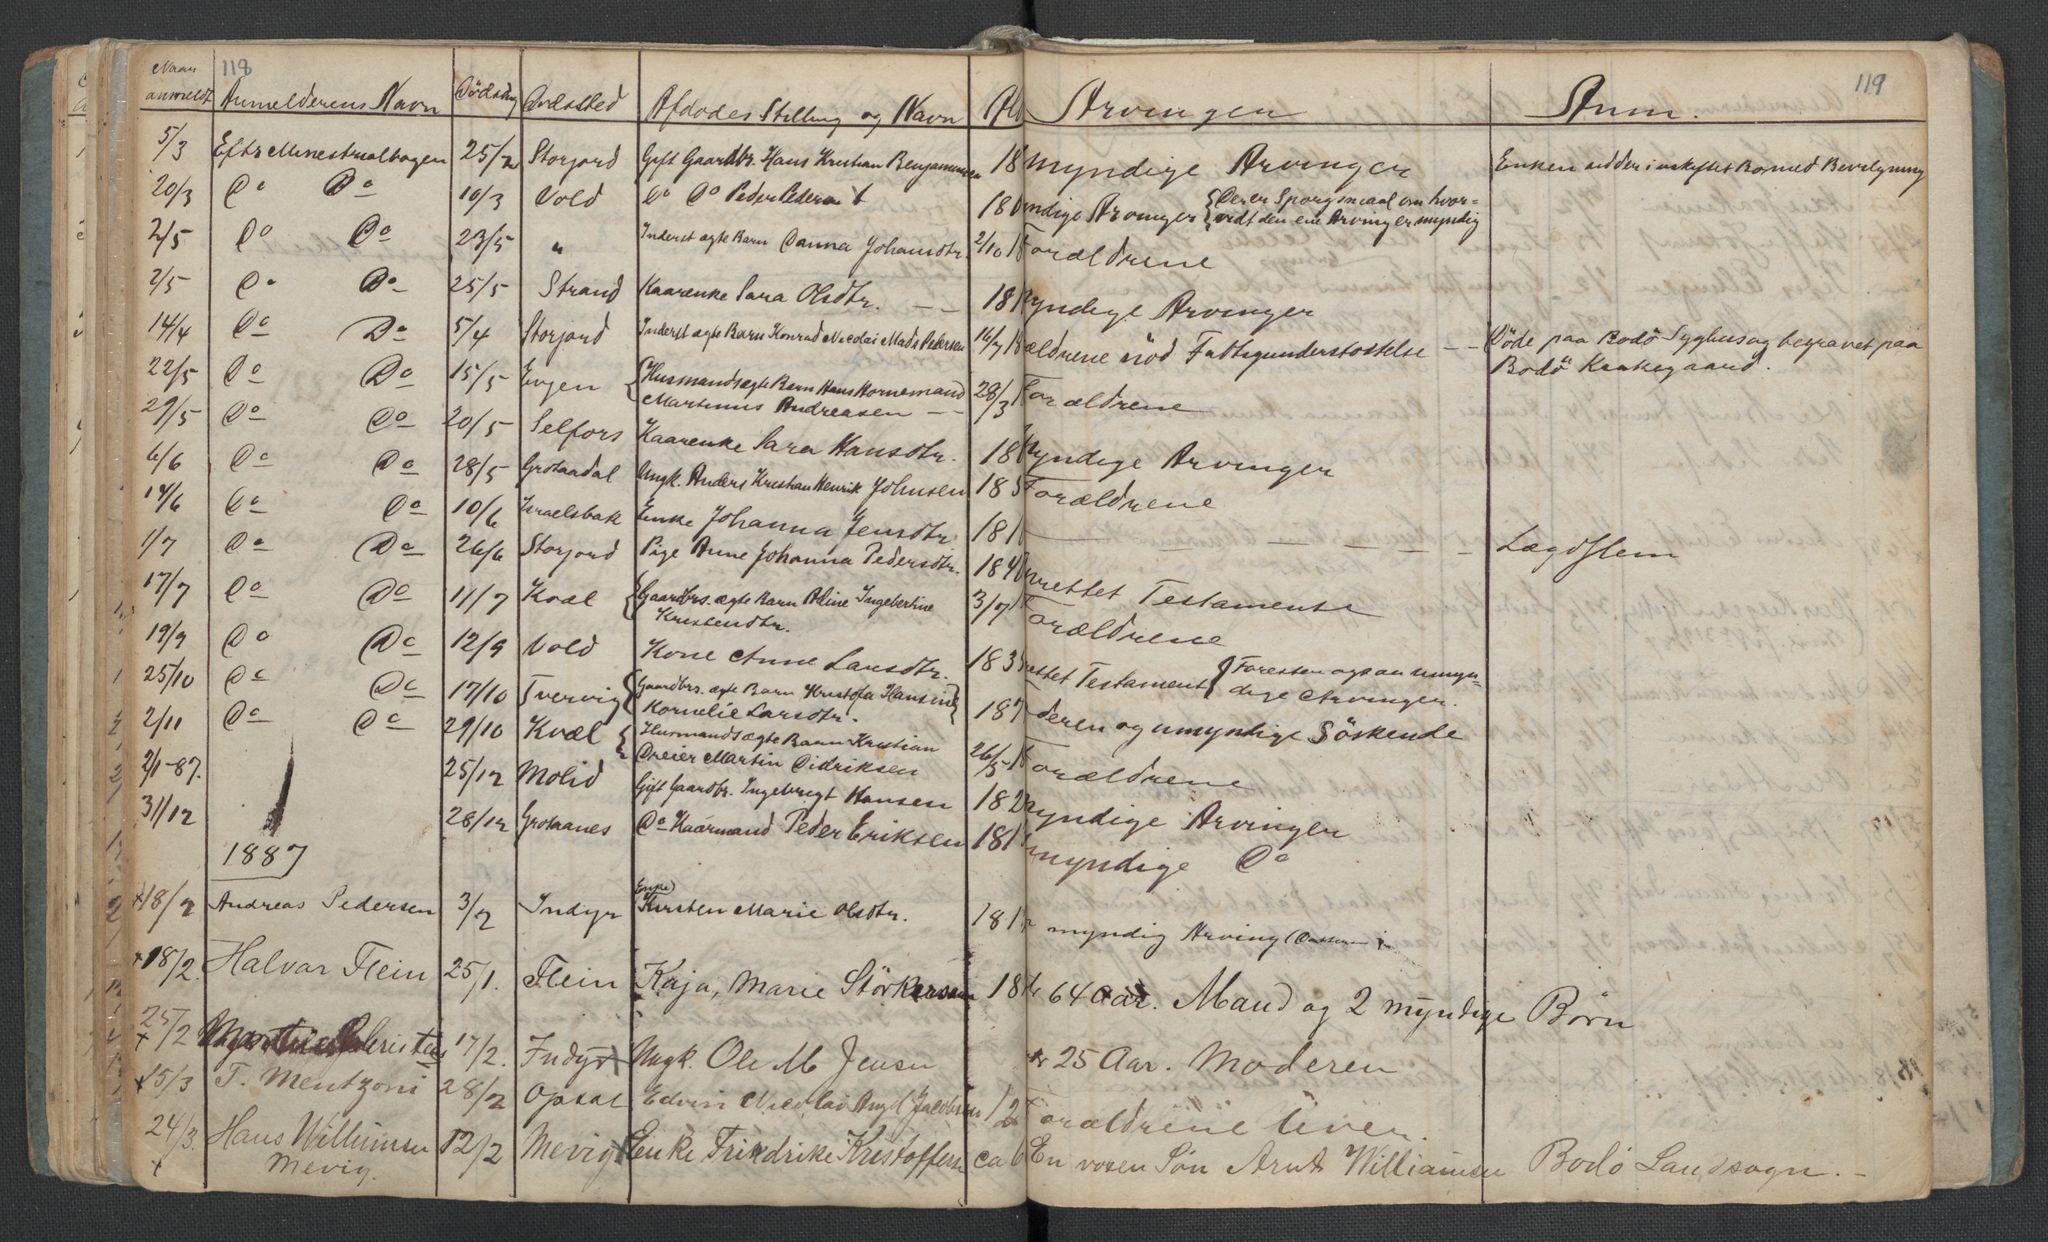 118
119
Naar anmeldt Anmelderens Navn Dödsdag Dödssted Afdødes Stilling og Navn Arvinger Anm.
5/3 Eftr Ministrialbogen 25/2 Storjord Gift Gaardbr. Hans Kristian Benjaminsen 18 myndige Arvinger Enken sidder i uskiftet Bo med Bevilgning
20/3 Do Do 10/3 Vold Do Do Peder Pedersen 18 Arvinger { Der er Sporgsmaal om hvor-
vidt den ene Arving er myndig
2/5 Do Do 23/5 " Inderst ægte Barn Danna Johansdtr. 2/10 Forældrene
2/5 Do Do 25/5 Strand Kaarenke Sara Olsdtr. — — 18 myndige Arvinger
14/4 Do Do 5/4 Storjord Inderst ægte Barn Konrad Nicolai Mads Pedersen 16/7 18 ældrene nöd Fattigunderstøttelse — — Döde paa Bodö Syghus og begravet paa
Bodö Kirkegaard.
22/5 Do Do 15/5 Evjen { Husmands ægte Barn Hans Hornemand
Martinus Andreasen — — 28/3 Forældrene
29/5 Do Do 20/5 Selfors Kaarenke Sara Hansdtr. 18 myndige Arvinger
6/6 Do Do 28/5 Grotaadal Ungk. Anders Kristian Henrik Johnsen 185 Forældrene
14/6 Do Do 10/6 Israelsbak Enke Johanna Jensdtr 181 — — — — — — — Lægdslem
1/7 Do Do 26/6 Storjord Pige Anne Johanna Pedersdtr. 184 oprettet Testamente
17/7 Do Do 11/7 Kvæl { Gaardbrs. ægte Barn Aline Ingebertine
Kristendtr. 3/7 Forældrene
19/9 Do Do 12/9 Vold Kone Anne Larsdtr. 183 ettet Testament { Foresten ogsaa umyn-
dige Arvinger.
25/10 Do Do 17/10 Tvervig { Gaardbrs. ægte Barn Kristofa Hansine }
Kornelie Larsdtr. 187 deren og umyndige Söskende
2/11 Do Do 29/10 Kvæl { Husmands ægte Barn Kristian
Dreier Martin Didriksen 26/5 18 Forældrene
2/1-87. 25/12 Molid Gift Gaardbr. Ingebrigt Hansen 182 myndige Arvinger
31/12 28/12 Grotaanes Do Kaarmand Peder Eriksen 181 myndige Do
1887
+18/2 Andreas Pedersen 3/2 Indyr Enke
Kirsten Marie Olsdtr. 181 myndig Arving
+18/2. Halvar Flein 25/1. Flein Kaja, Marie Störkersen 18 64 Aar. Mand og 2 myndige Börn
25/2 + 17/2. Indyr Ungk. Ole M Jensen 25 Aar. Moderen
+15/3 T. Mentzoni 28/2 Opsal Edvin Nicolai Angel Jacobsen 12 Forældrene liver.
24/3. Hans Williumsen 12/2 Mevig Enke Fridrike Kristoffersen ca 6 En voxen Søn Arnt Williamsen Bodö Landsogn. —
+ Mevig.